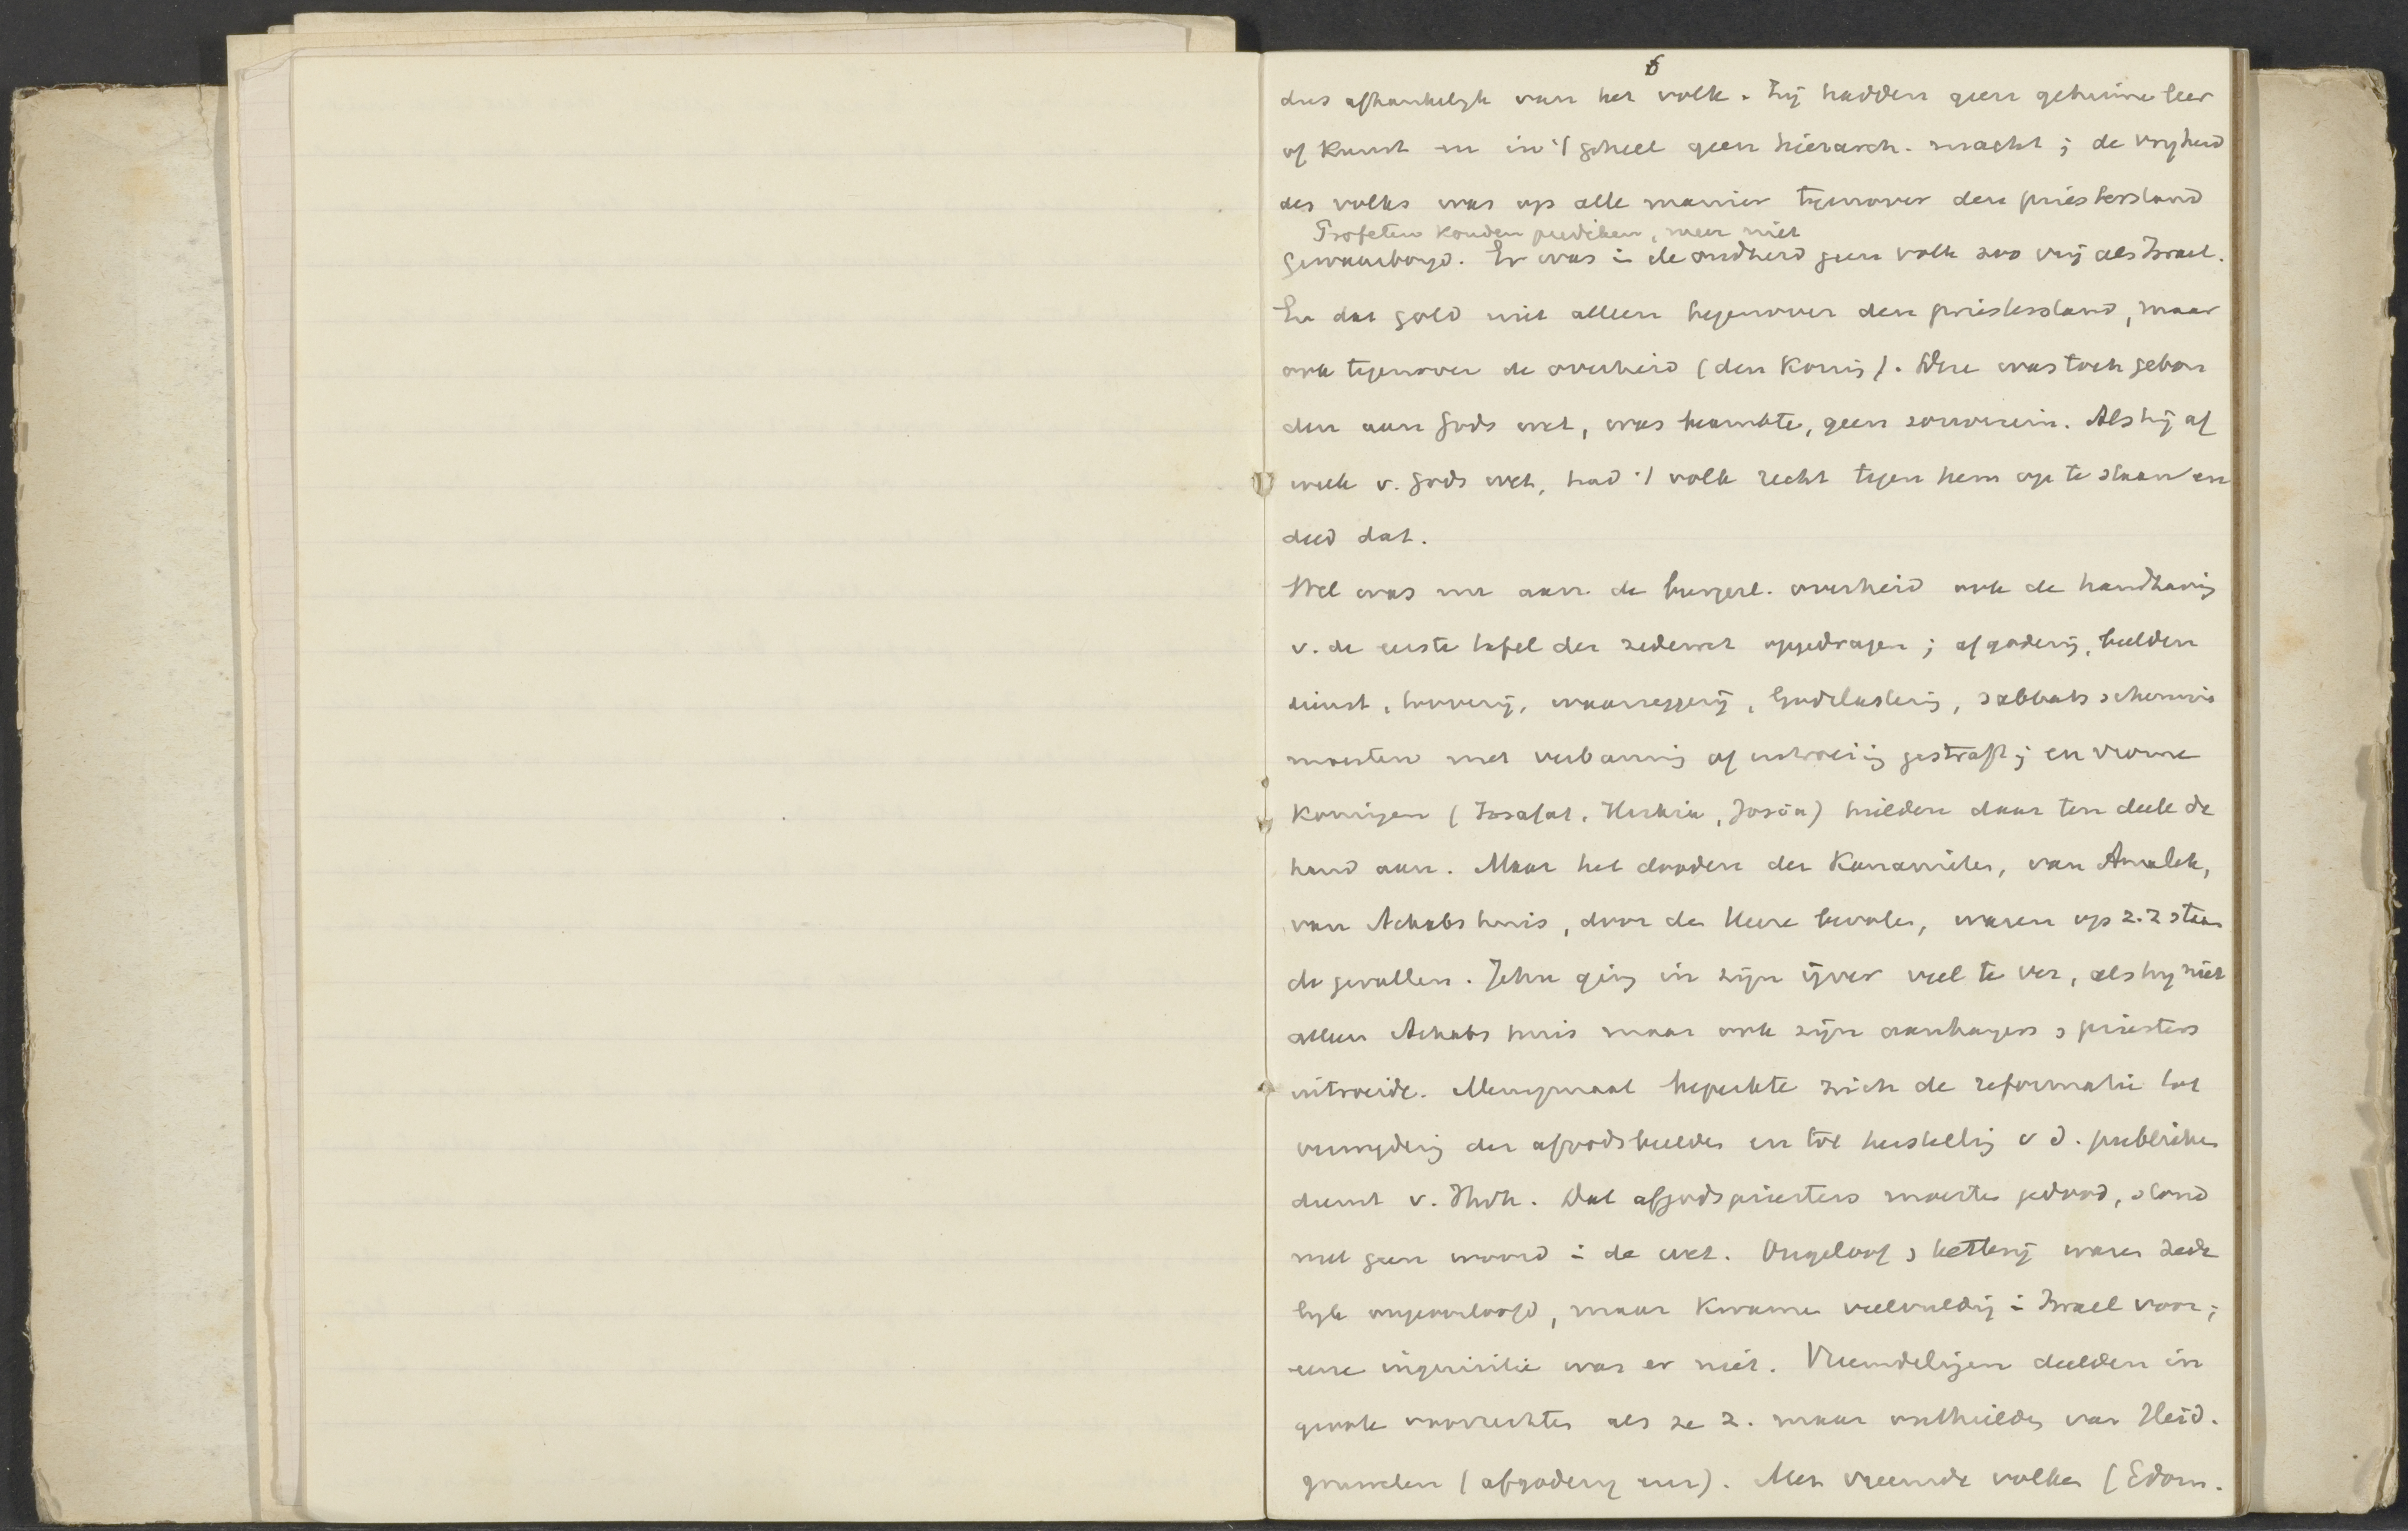 6
dus afhankelijk van het volk. Zij hadden geen geheime leer
of kunst en in 't geheel geen hierarch. macht; de vrijheid
des volks was op alle manier tegenover den priesterstand
Profeten konden prediken, meer niet
gewaarborgd. Er was i de oudheid geen volk zoo vrij als Israel.
En dat gold niet alleen tegenover den priesterstand, maar
ook tegenover de overheid (den Koning). Deze was toch gebon
den aan Gods wet, was beambte, geen souverein. Als hij af
week v. Gods wet, had 't volk recht tegen hem op te staan en
deed dat.
Wel was nu aan de burgerl. overheid ook de handhaving
v. de eerste tafel der zedewet opgedragen; afgoderij, beelden
dienst, toovery, waarzeggerij, Godslastering, sabbatsschennis
moesten met verbanning of uitroeiing gestraft; en vrome
Koningen (Josafat, Hiskia, Josia) hielden daar ten deele de
hand aan. Maar het dooden der Kanaanieten, van Amalek,
van Achabs huis, door den Heere bevolen, waren op z. z staan
de gevallen. Jehu ging in zijn ijver veel te ver, als hij niet
alleen Achabs huis maar ook zijn aanhangers & priesters
uitroeide. Menigmaal beperkte zich de reformatie tot
vernijdering der afgodsbeelden en tot herstelling v d. publieken
dienst v. Jhvh. Dat afgodspriesters moesten gedood, stond
met geen woord i de wet. Ongeloof & ketterij waren zede
lijk ongeoorloofd, maar kwamen veelvuldig i Israel voor;
eene inquisitie was er niet. Vreemdelingen deelden in
groote voorrechten als ze z. maar onthielden van Heid.
gruwelen (afgoderij enz). Met vreemde volken (Edom.